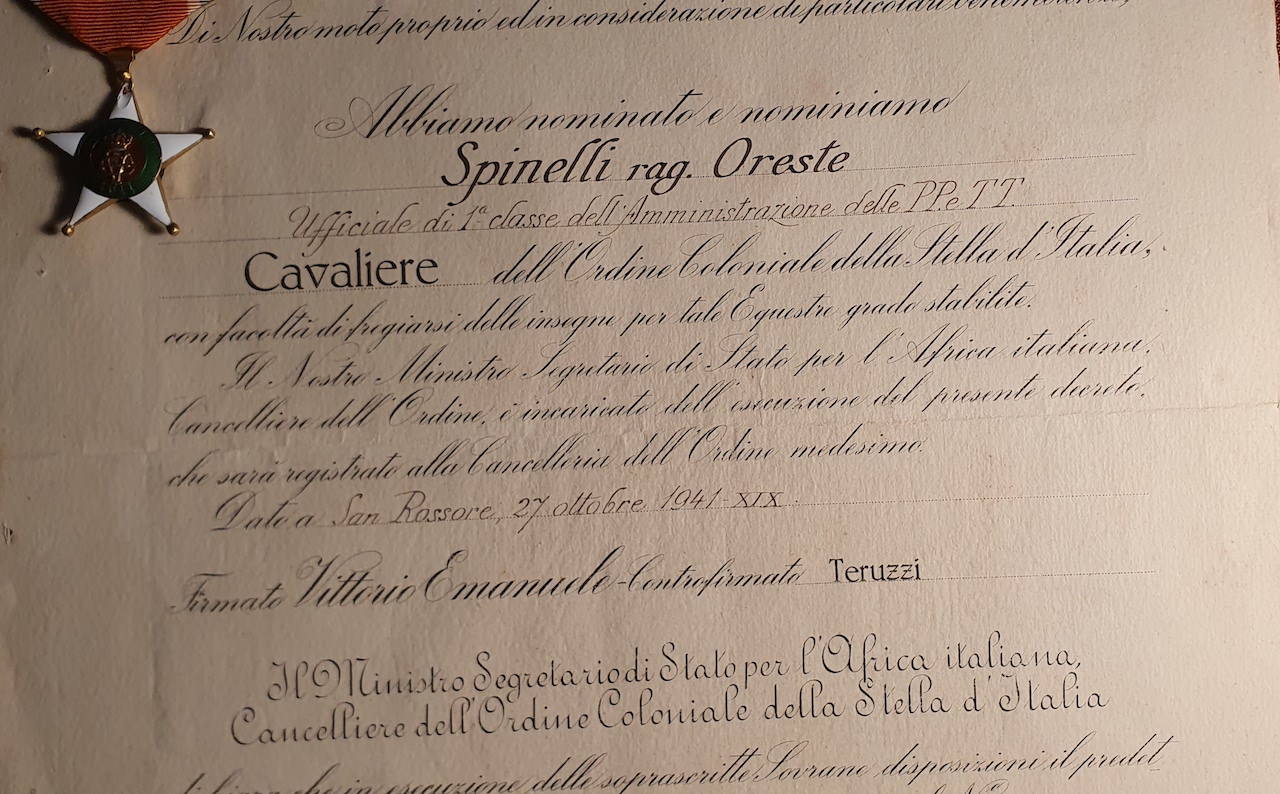 Di Nostro moto proprio ed in considerazione di particolari benemerenze,
Abbiamo nominato e nominiamo
Spinelli rag. Oreste
Ufficiale di 1ª classe dell'Amministrazione delle PP. e TT.
Cavaliere dell'Ordine Coloniale della Stella d'Italia,
con facoltà di fregiarsi delle insegne per tale Equestre grado stabilite.
Il Nostro Ministro Segretario di Stato per l'Africa italiana,
Cancelliere dell'Ordine, è incaricato dell'esecuzione del presente decreto,
che sarà registrato alla Cancelleria dell'Ordine medesimo.
Dato a San Rossore, 27 ottobre 1941-XIX.
Firmato Vittorio Emanuele - Controfirmato Teruzzi
Il Ministro Segretario di Stato per l'Africa italiana,
Cancelliere dell'Ordine Coloniale della Stella d'Italia
dichiara che in esecuzione delle soprascritte Sovrane disposizioni il predet-